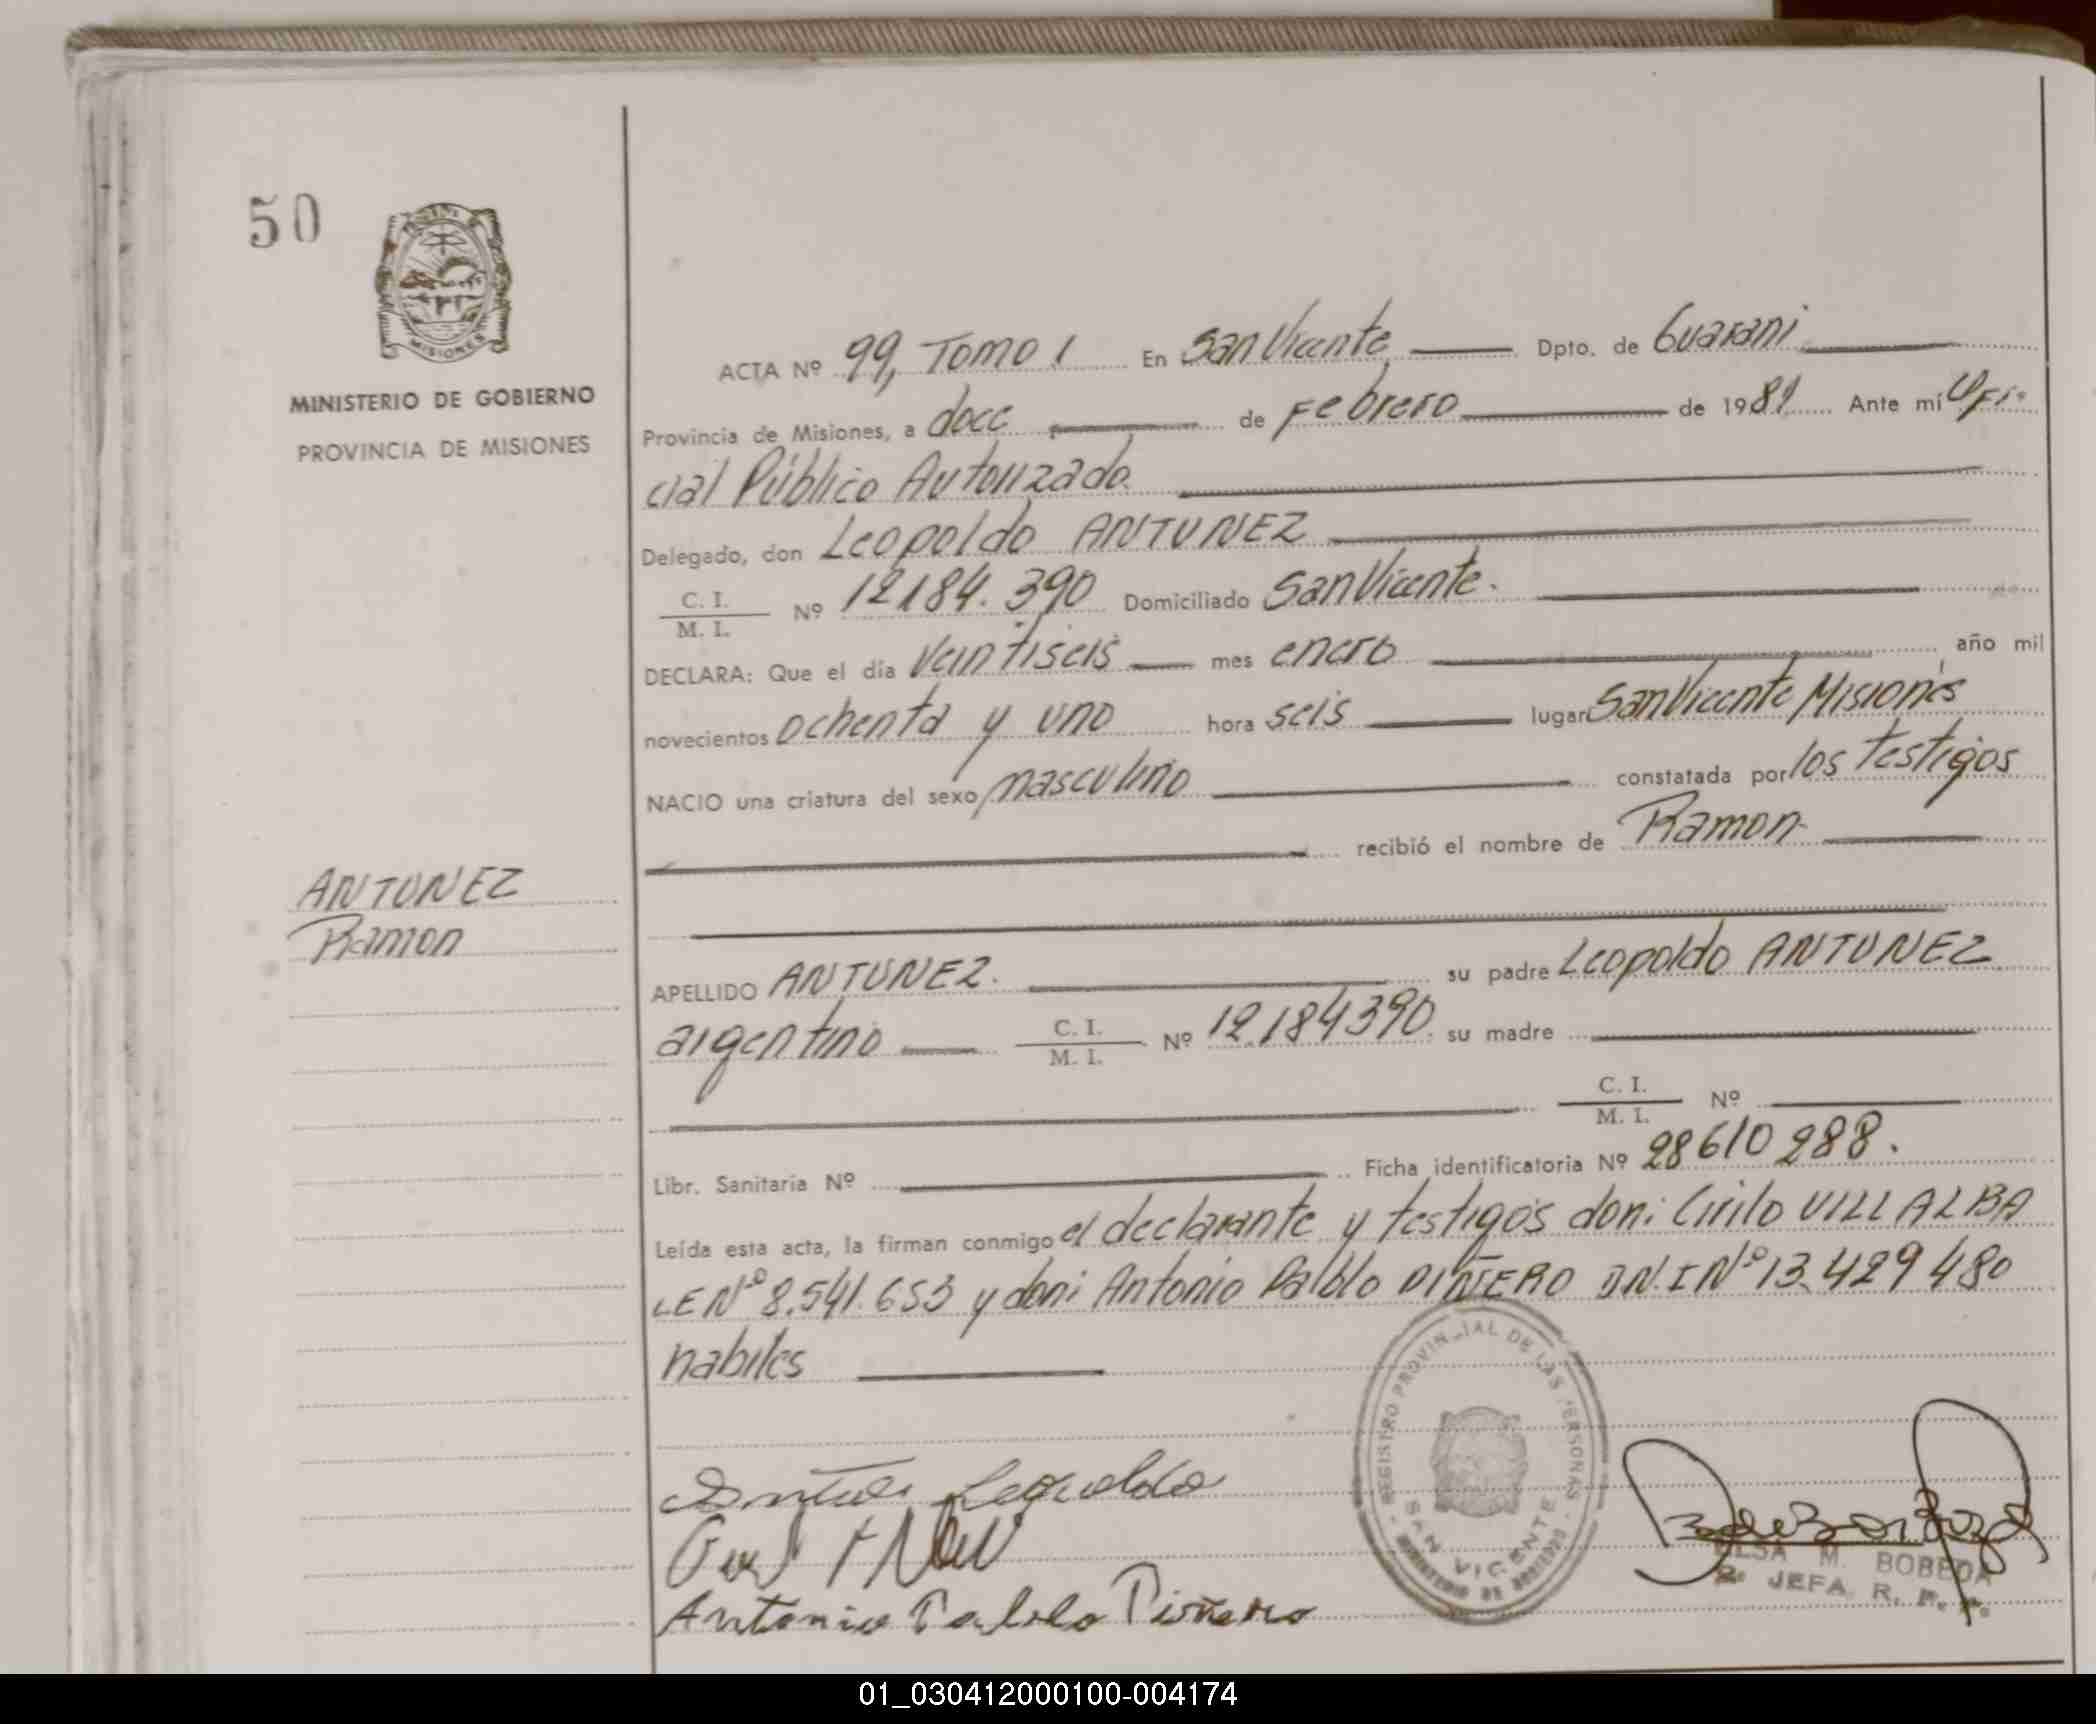 50
MISIONES
MINISTERIO DE GOBIERNO
PROVINCIA DE MISIONES
ACTA Nº 99, Tomo I En San Vicente Dpto. de Guarani
Provincia de Misiones, a doce de Febrero de 1981 Ante mí Ofi-
cial Público Autorizado
Delegado, don Leopoldo ANTUNEZ
C. I.
M. I. Nº 12184.390 Domiciliado San Vicente.
DECLARA: Que el día Veintiseis mes enero año mil
novecientos ochenta y uno hora seis lugar San Vicente Misiones
NACIO una criatura del sexo masculino constatada por los testigos
recibió el nombre de Ramon
ANTUNEZ
Ramon
APELLIDO ANTUNEZ. su padre Leopoldo ANTUNEZ
argentino C. I.
M. I. Nº 12.184390 su madre
C. I.
M. I. Nº
Libr. Sanitaria Nº Ficha identificatoria Nº 28610288.
Leída esta acta, la firman conmigo el declarante y testigos don: Cirilo VILLALBA
LE Nº 8.541.653 y don: Antonio Pablo PIÑERO D.N.I Nº 13.429480
habiles
REGISTRO PROVINCIAL DE LAS PERSONAS
SAN VICENTE
MINISTERIO DE GOBIERNO
Leopoldo
Antonio Pablo Piñero
ELSA M. BOBEDA
2ª JEFA R. P. P.
01_030412000100-004174